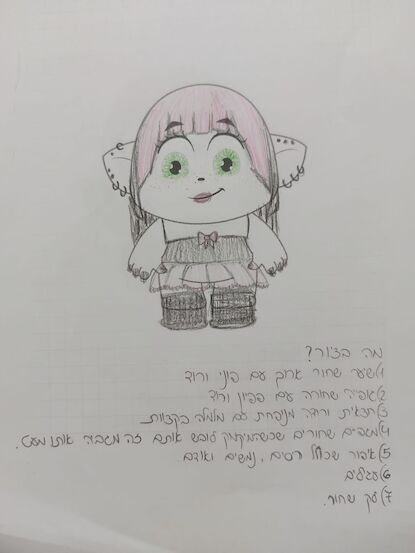 מה בציור?
1) שער שחור ארוך עם פוני ורוד
2) גופיה שחורה עם פפיון ורוד
3) חצאית ורודה מנופחת עם מלמלה בקצוות
4) מגפיים שחורים שכשהמיקמק לובש אותם זה מגביה אותו מעט.
5) איפור שכולל ריסים, נמשים ואודם
6) עגילים
7) לק שחור.